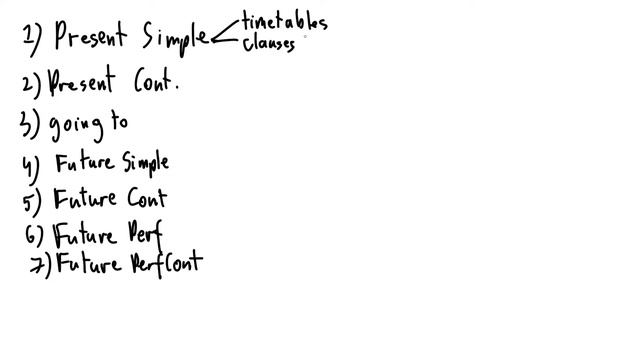 1) Present Simple < timetables
clauses
2) Present Cont.
3) going to
4) Future Simple
5) Future Cont
6) Future Perf
7) Future Perf Cont